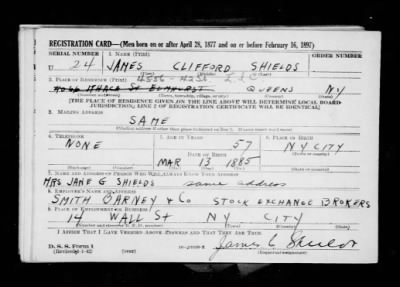 REGISTRATION CARD—(Men born on or after April 28, 1877 and on or before February 16, 1897)
SERIAL NUMBER 1. NAME (Print)
U 24 JAMES CLIFFORD SHIELDS
2. PLACE OF RESIDENCE (Print)
4536-42 St
ITHACA ST ELMHURST QUEENS NY
[THE PLACE OF RESIDENCE GIVEN ON THE LINE ABOVE WILL DETERMINE LOCAL BOARD
JURISDICTION; LINE 2 OF REGISTRATION CERTIFICATE WILL BE IDENTICAL]
3. MAILING ADDRESS
SAME
4. TELEPHONE 5. AGE IN YEARS 6. PLACE OF BIRTH
NONE 57 NY CITY
DATE OF BIRTH
MAR 13 1885
7. NAME AND ADDRESS OF PERSON WHO WILL ALWAYS KNOW YOUR ADDRESS
MRS JANE G SHIELDS same address
8. EMPLOYER'S NAME AND ADDRESS
SMITH BARNEY & Co STOCK EXCHANGE BROKERS
9. PLACE OF EMPLOYMENT OR BUSINESS
14 WALL St NY CITY
I AFFIRM THAT I HAVE VERIFIED ABOVE ANSWERS AND THAT THEY ARE TRUE.
D. S. S. Form 1
James C Shields